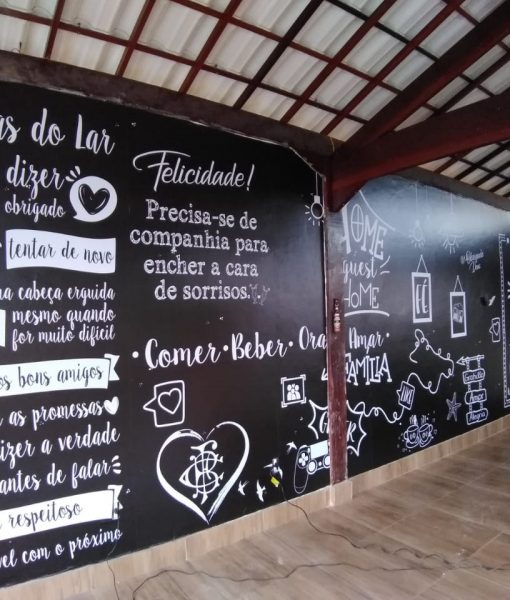 do Lar
dizer
obrigado
tentar de novo
cabeça erguida
mesmo quando
for muito difícil
os bons amigos
as promessas
dizer a verdade
antes de falar
respeitoso
com o próximo
Felicidade!
Precisa-se de
companhia para
encher a cara
de sorrisos.
• Comer • Beber • Amar
FAMÍLIA
HOME
guest
HOME
Amor
Alegria